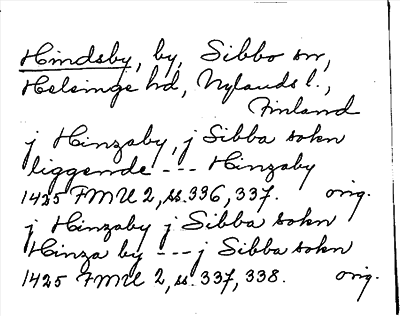 Hindsby, by, Sibbo sn,
Helsinge hd, Nylands l.,
Finland
j Hinzaby, j Sibba sokn
liggende --- Hinzaby
1425 FMU 2, ss. 336, 337. orig.
j Hinzaby j Sibba sokn
Hinza by --- j Sibba sokn
1425 FMU 2, ss. 337, 338. orig.